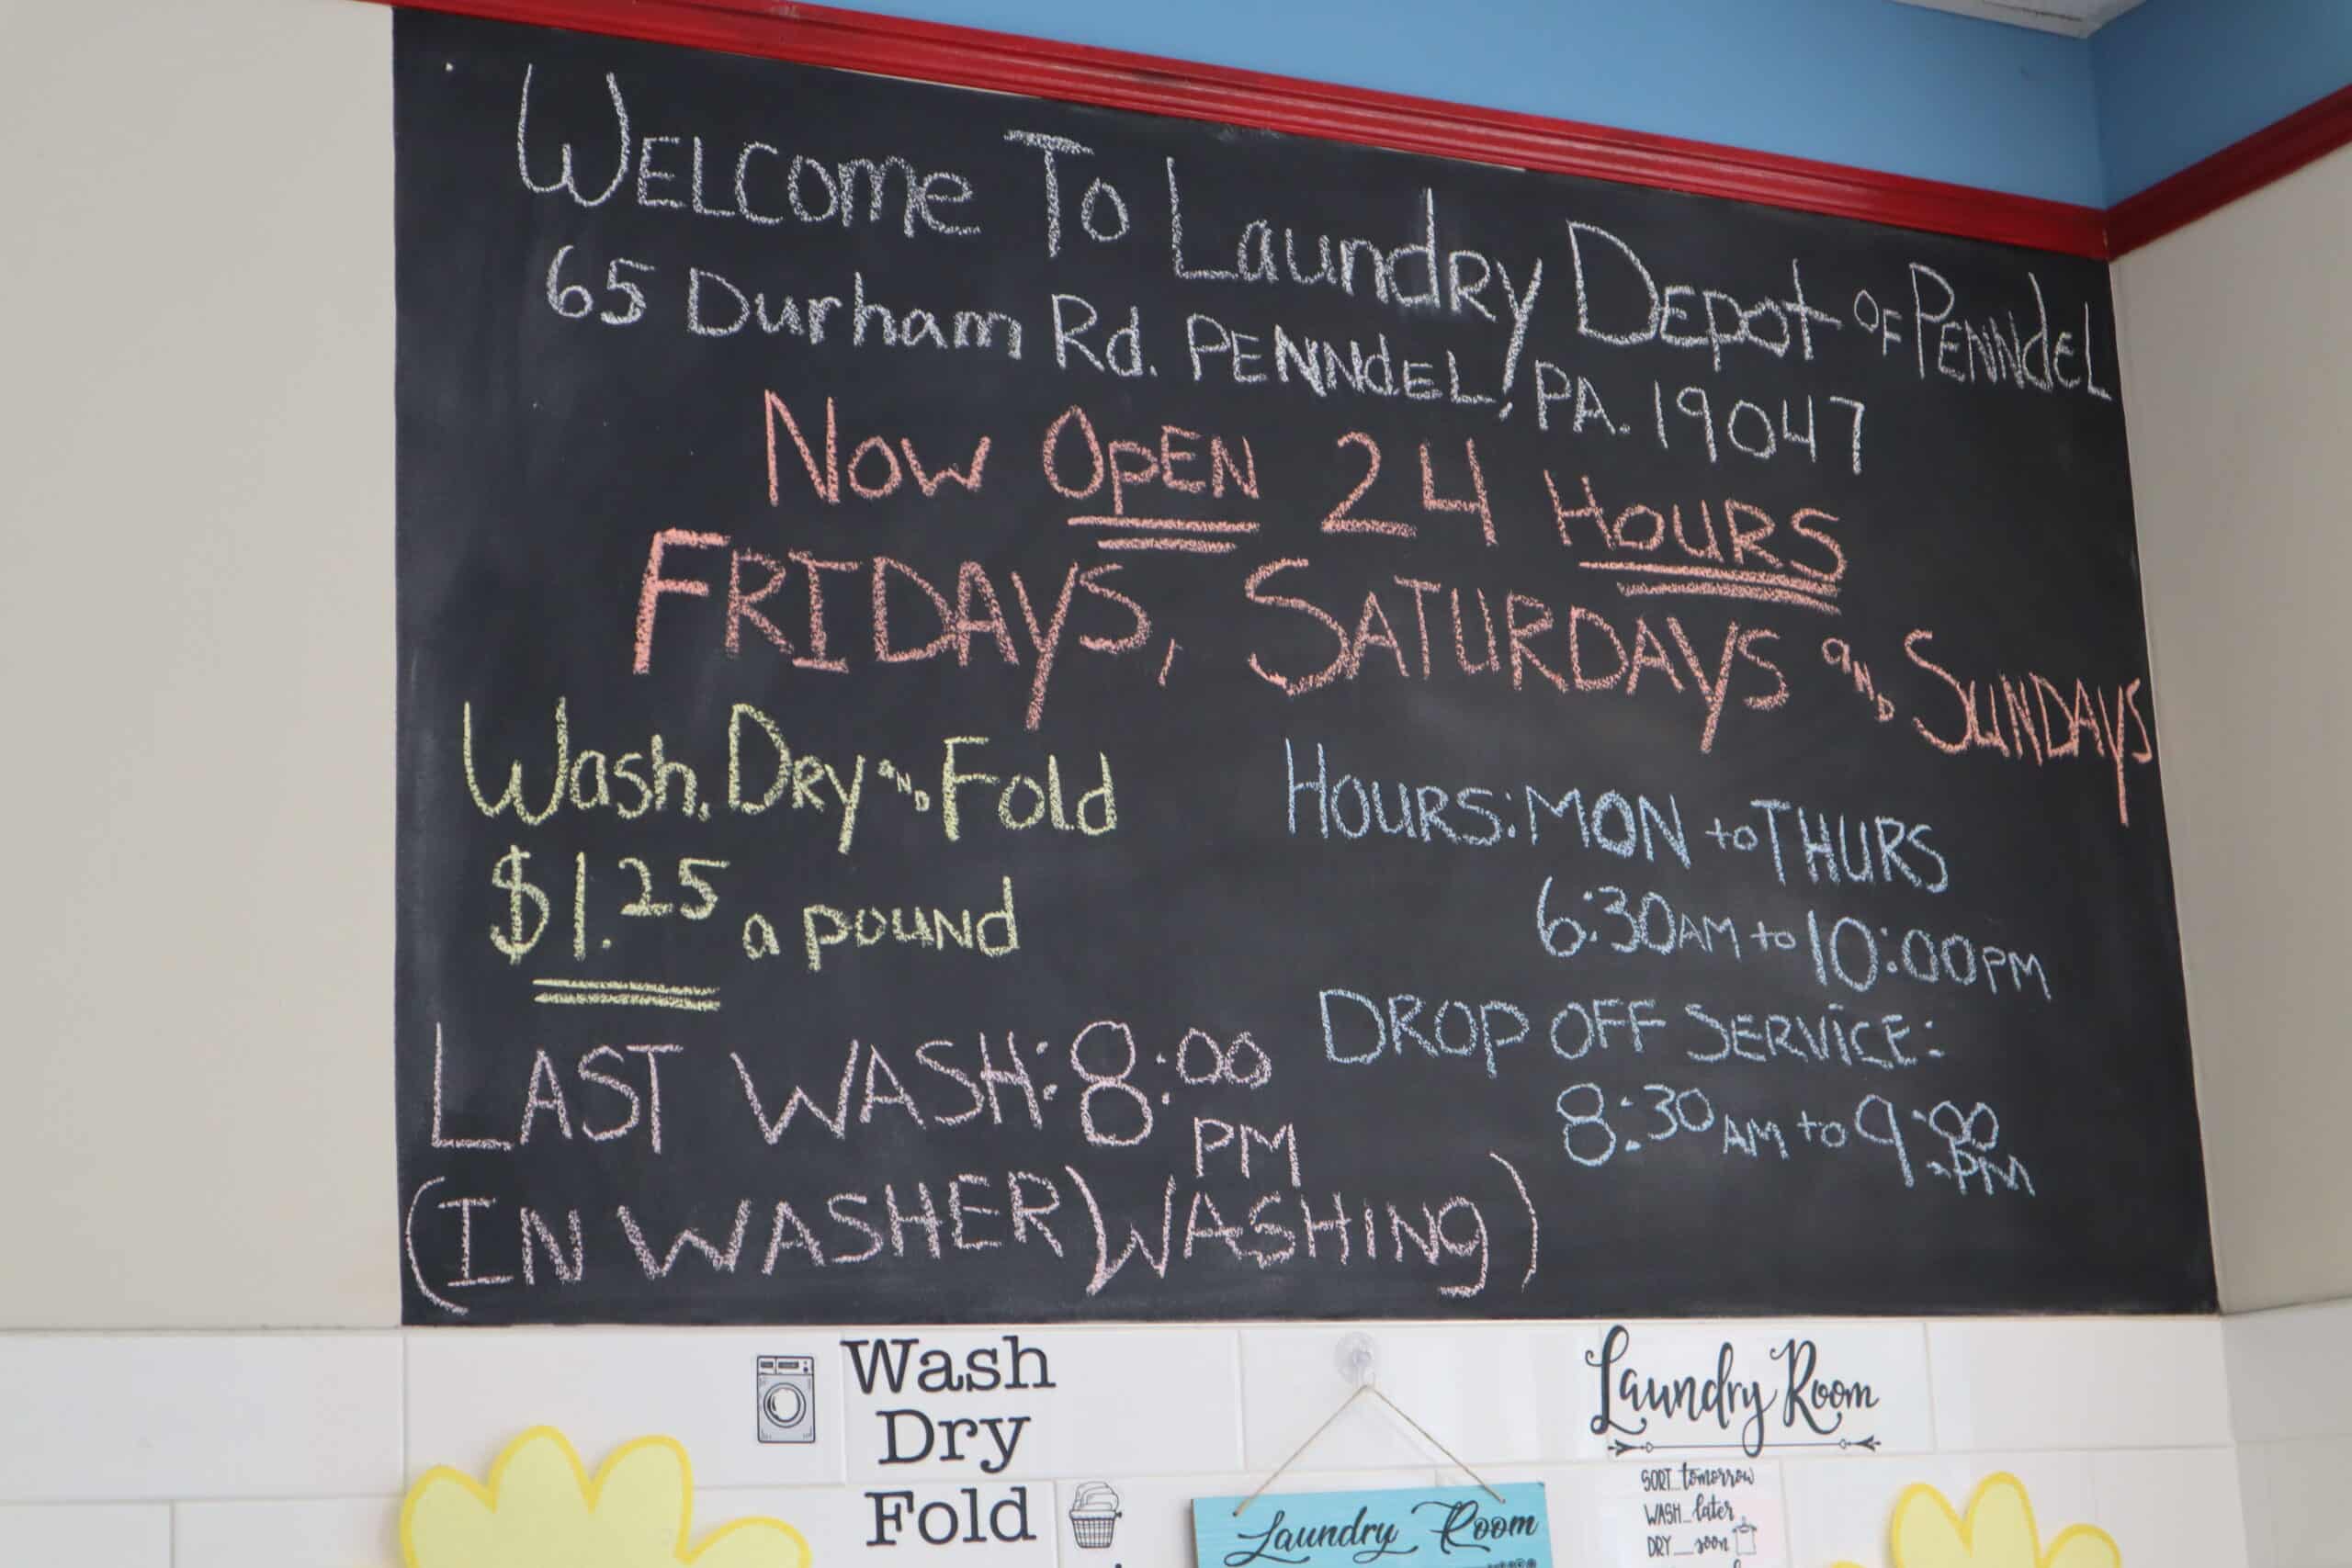 WELCOme To LaundRy DEpot OF PENNdEL
65 Durham Rd. PENNdEL, PA. 19047
Now OpEN 24 HOURS
FRIDAYS, SATURDAYS aND SUNDAYS
Wash, DRy aND Fold
$1.25 a pound
HOURS: MON to THURS
6:30AM to 10:00PM
DROP OFF SERViCE:
8:30AM to 9:00PM
LAST WASH: 8:00 PM
(IN WASHER) WASHINg)
Wash
Dry
Fold
Laundry Room
Laundry Room
SORT...tomorrow
WASH...later
DRY...soon